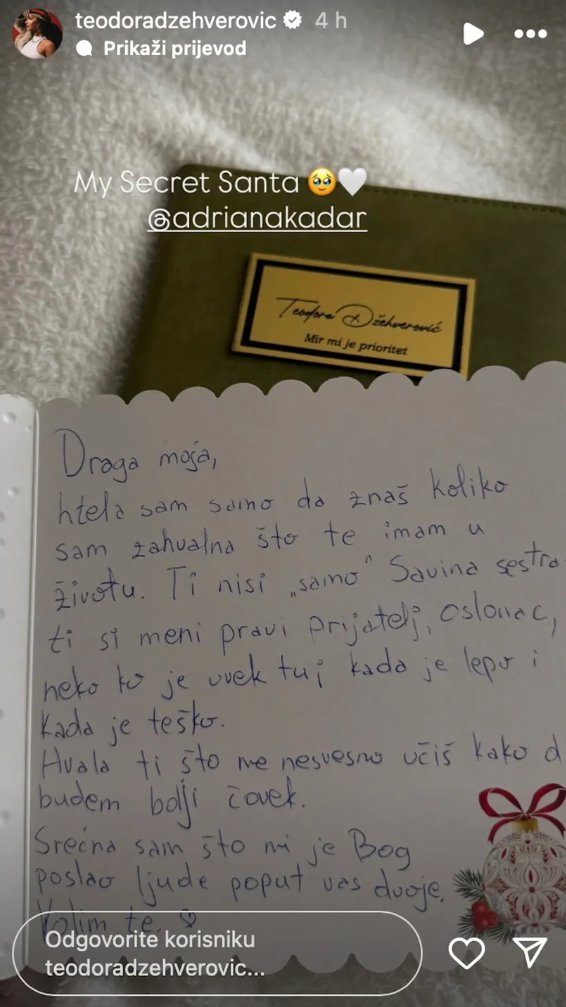 teodoradzehverovic 4 h
Prikaži prijevod
My Secret Santa 🥹🤍
@adrianakadar
Teodora Džehverović
Mir mi je prioritet
Draga moja,
htela sam samo da znaš koliko
sam zahvalna što te imam u
životu. Ti nisi „samo" Savina sestra
ti si meni pravi prijatelj, oslonac,
neko ko je uvek tu i kada je lepo i
kada je teško.
Hvala ti što me nesvesno učiš kako d
budem bolji čovek.
Srećna sam što mi je Bog
poslao ljude poput vas dvoje.
Volim te. ♡
Odgovorite korisniku
teodoradzehverovic...